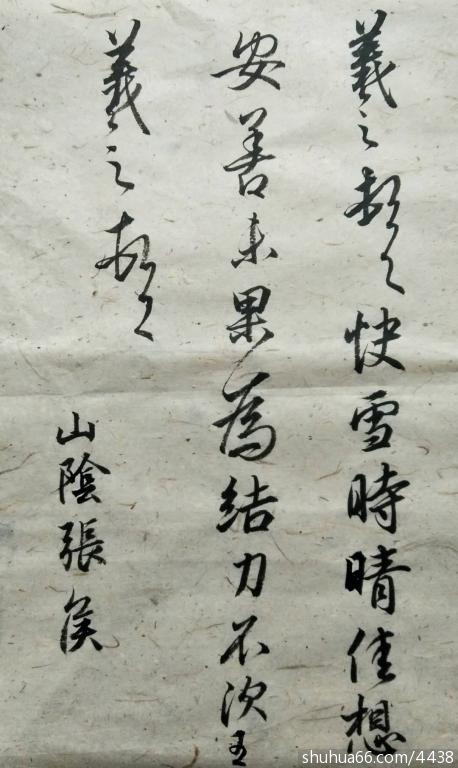 羲之頓首快雪時晴佳想
安善未果為結力不次王
羲之頓首
山陰張侯
shuhua66.com/4438